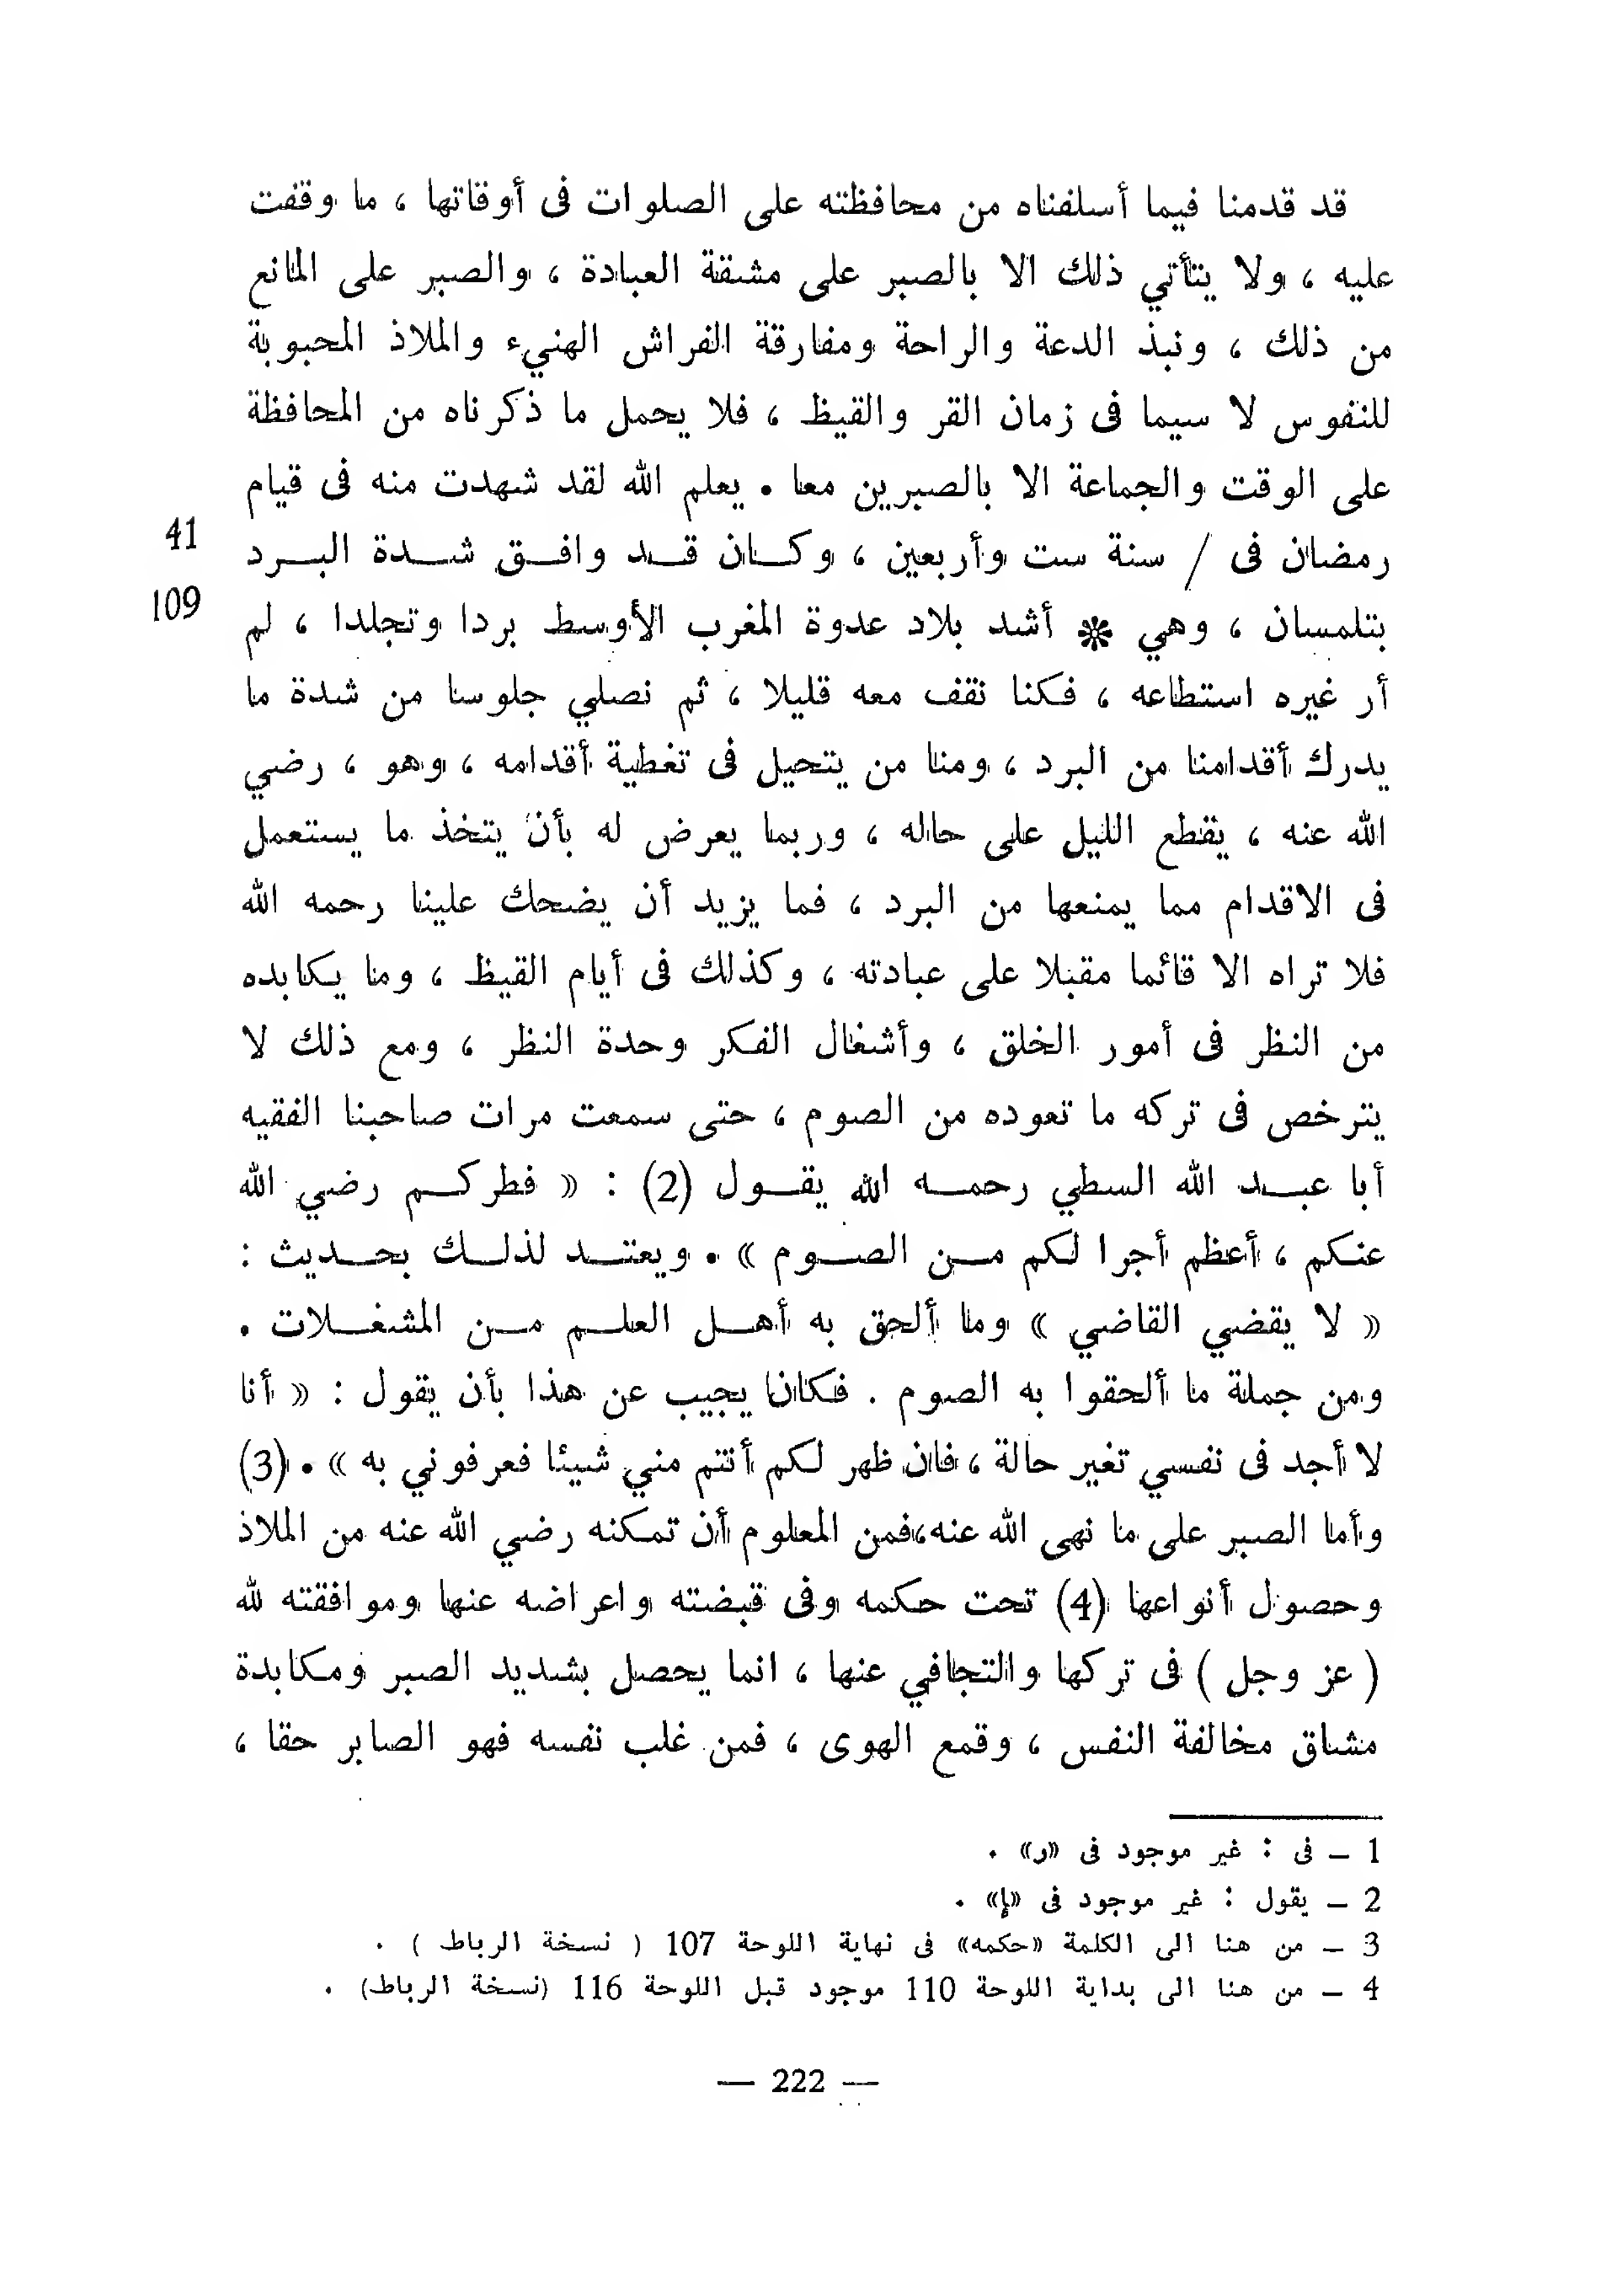 قد قدمنا فيما أسلفناه من محافظته على الصلوات فى أوقاتها ، ما وقفت
عليه ، ولا يتأتي ذلك الا بالصبر على مشقة العبادة ، والصبر على المانع
من ذلك ، ونبذ الدعة والراحة ومفارقة الفراش الهنيء والملاذ المحبوبة
للنفوس لا سيما فى زمان القر والقيظ ، فلا يحمل ما ذكرناه من المحافظة
على الوقت والجماعة الا بالصبرين معا . يعلم الله لقد شهدت منه فى قيام
رمضان فى / سنة ست وأربعين ، وكان قد وافق شدة البرد
41
بتلمسان ، وهي * أشد بلاد عدوة المغرب الأوسط بردا وتجلدا ، لم
109
أر غيره استطاعه ، فكنا نقف معه قليلا ، ثم نصلي جلوسا من شدة ما
يدرك أقدامنا من البرد ، ومنا من يتحيل فى تغطية أقدامه ، وهو ، رضي
الله عنه ، يقطع الليل على حاله ، وربما يعرض له بأن يتخذ ما يستعمل
فى الاقدام مما يمنعها من البرد ، فما يزيد أن يضحك علينا رحمه الله
فلا تراه الا قائما مقبلا على عبادته ، وكذلك فى أيام القيظ ، وما يكابده
من النظر فى أمور الخلق ، وأشغال الفكر وحدة النظر ، ومع ذلك لا
يترخص فى تركه ما تعوده من الصوم ، حتى سمعت مرات صاحبنا الفقيه
أبا عبد الله السطي رحمه الله يقول (2) : « فطركم رضي الله
عنكم ، أعظم أجرا لكم من الصوم » . ويعتد لذلك بحديث :
« لا يقضي القاضي » وما ألحق به أهل العلم من المشغلات .
ومن جملة ما ألحقوا به الصوم . فكان يجيب عن هذا بأن يقول : « أنا
لا أجد فى نفسي تغير حالة ، فان ظهر لكم أنتم مني شيئا فعرفوني به » . (3)
وأما الصبر على ما نهى الله عنه ، فمن المعلوم أن تمكنه رضي الله عنه من الملاذ
وحصول أنواعها (4) تحت حكمه وفى قبضته واعراضه عنها وموافقته لله
( عز وجل ) فى تركها والتجافي عنها ، انما يحصل بشديد الصبر ومكابدة
مشاق مخالفة النفس ، وقمع الهوى ، فمن غلب نفسه فهو الصابر حقا ،
1 – فى : غير موجود فى «ر» .
2 – يقول : غير موجود فى «إ» .
3 – من هنا الى الكلمة «حكمه» فى نهاية اللوحة 107 ( نسخة الرباط ) .
4 – من هنا الى بداية اللوحة 110 موجود قبل اللوحة 116 (نسخة الرباط) .
— 222 —